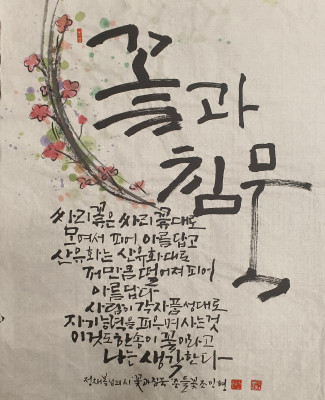 꽃과
침묵
싸리꽃은 싸리꽃대로
모여서 피어 아름답고
산유화는 산유화대로
저만큼 떨어져 피어
아름답다
사람이 각자 품성대로
자기 능력을 피우며 사는 것
이것도 한송이 꽃이라고
나는 생각한다
정채봉님의 시 꽃과 침묵